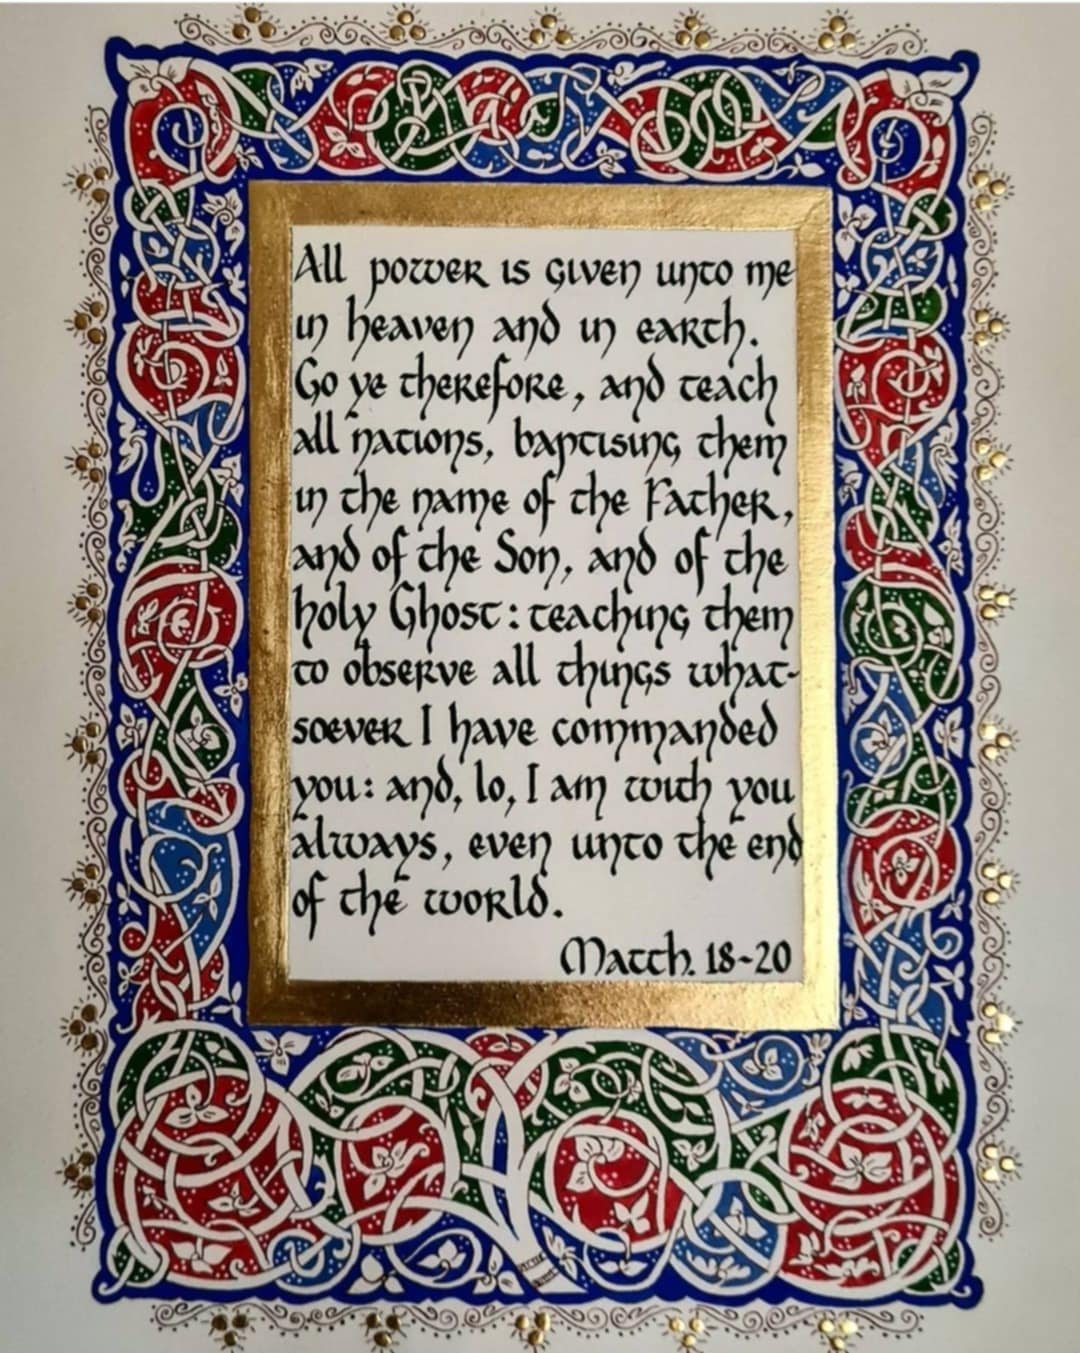 All power is given unto me
in heaven and in earth.
Go ye therefore, and teach
all nations, baptising them
in the name of the Father,
and of the Son, and of the
holy Ghost: teaching them
to observe all things what-
soever I have commanded
you: and, lo, I am with you
always, even unto the end
of the world.
Matth. 18-20